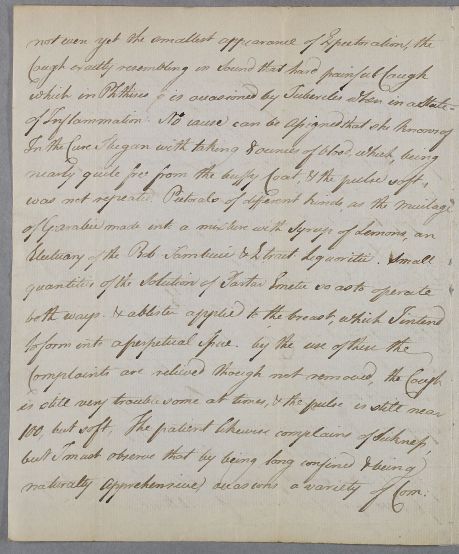 not even yet the smallest appearance of Expectoration, the
Cough exactly resembling in Sound that hard painful Cough
which in Phthisis is occasioned by Tubercles when in a State
of Inflammation. No cause can be assigned that she knows of
In the Cure I began with taking 8 ounces of blood, which, being
nearly quite free from the buffy Coat, & the pulse soft,
was not repeated. Pectorals of different kinds, as the mucilage
of G. arabic made into a mixture with Syrup of Lemons, an
Electuary of the Rob Sambuci & Extract Liquoritiæ. Small
quantities of the Solution of Tartar Emetic so as to operate
both ways. & a blister applied to the breast, which I intend
to form into a perpetual Issue. by the use of these the
Complaints are relieved though not removed, the Cough
is still very troublesome at times, & the pulse is still near
100, but soft, The patient likewise complains of Sickness,
but I must observe that by being long confined & being
naturally apprehensive occasions a variety of Com: